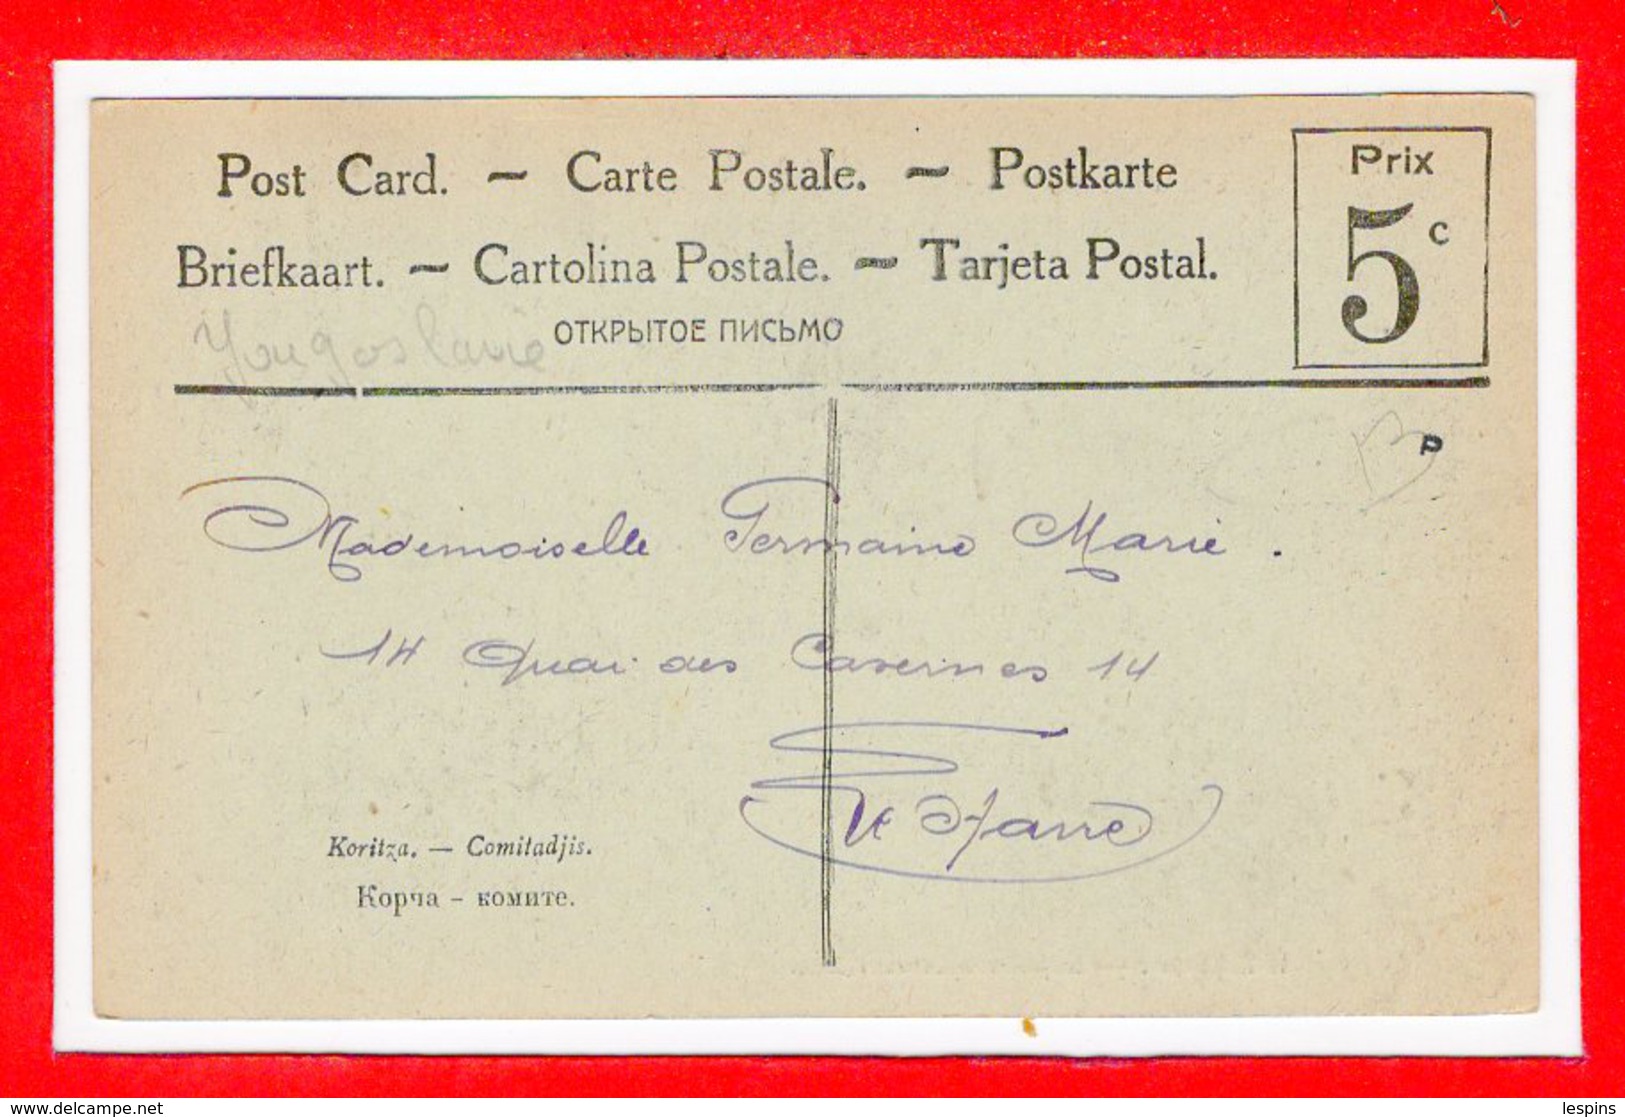 Post Card. – Carte Postale. – Postkarte
Briefkaart. – Cartolina Postale. – Tarjeta Postal.
ОТКРЫТОЕ ПИСЬМО
Prix
5c
Yougoslavie
P
Mademoiselle Germaine Marie.
14 Quai des Casernes 14
Koritza. — Comitadjis.
Корча - комите.
delcampe.net
lespins